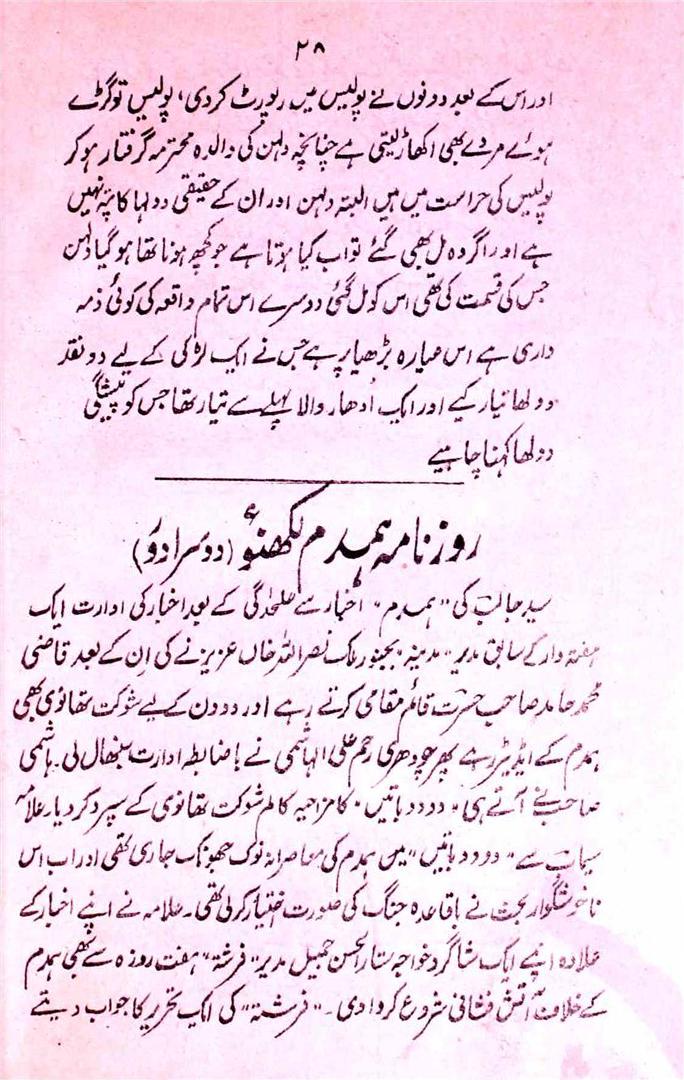 ۲۸
اور اس کے بعد دونوں نے پولیس میں رپورٹ کردی، پولیس تو گڑے
ہوئے مردے بھی اکھاڑ لیتی ہے چنانچہ دلہن کی والدہ محترمہ گرفتار ہو کر
پولیس کی حراست میں ہیں البتہ دلہن اور ان کے حقیقی دولہا کا پتہ نہیں
ہے اور اگر وہ مل بھی گئے تو اب کیا ہوتا ہے جو کچھ ہونا تھا ہو گیا دلہن
جس کی قسمت کی تھی اس کو مل گئی دوسرے اس تمام واقعہ کی کوئی ذمہ
داری ہے اس عیارہ بڑھیا پر ہے جس نے ایک لڑکی کے لیے دو نقد
دولھا تیار کیے اور ایک اُدھار والا پہلے سے تیار تھا جس کو پیشگی
دولھا کہنا چاہیے
روزنامہ ہمدم لکھنؤ (دوسرا دور)
سید جالب کی "ہمدم" اخبار سے علحدگی کے بعد اخبار کی ادارت ایک
ہفتہ وار کے سابق مدیر "مدینہ" بجنور ملک نصراللہ خاں عزیز نے کی اِن کے بعد قاضی
محمد حامد صاحب حسرت قائم مقامی کرتے رہے اور دو دن کے لیے شوکت تھانوی بھی
ہمدم کے ایڈیٹر رہے پھر چودھری رحم علی الہاشمی نے باضابطہ ادارت سنبھال لی۔ ہاشمی
صاحب نے آتے ہی "دو دو باتیں" کا مزاحیہ کالم شوکت تھانوی کے سپرد کر دیا۔ علامہ
سیماب سے "دو دو باتیں" میں ہمدم کی معاصرانہ نوک جھونک جاری تھی اور اب اس
ناخوشگوار بحث نے باقاعدہ جنگ کی صورت اختیار کرلی تھی۔ علامہ نے اپنے اخبار کے
علاوہ اپنے ایک شاگرد خواجہ الحسن جمیل مدیر "فرشتہ" ہفت روزہ سے بھی ہمدم
کے خلاف آتش فشانی شروع کروا دی۔ "فرشتہ" کی ایک تحریر کا جواب دیتے